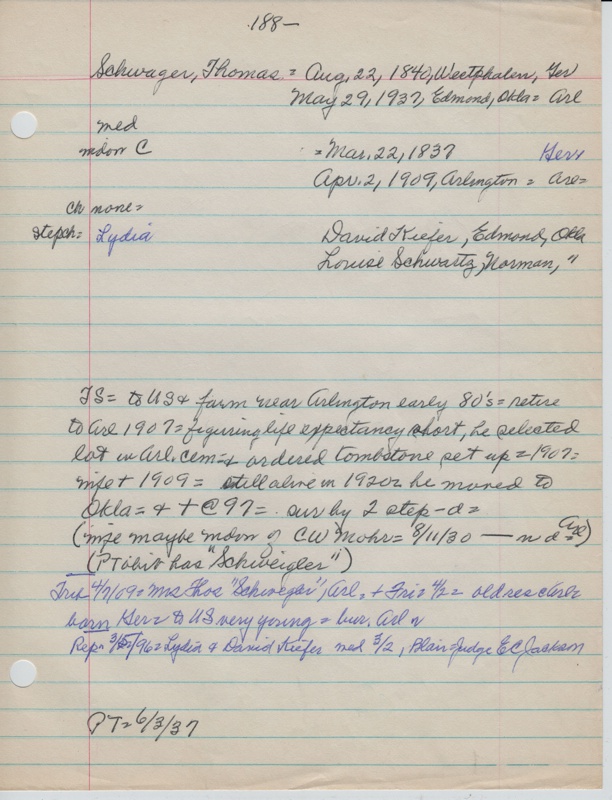 188-
Schwager, Thomas = Aug, 22, 1840, Westphalen, Ger
May 29, 1937, Edmond, Okla = Arl
med
mdow C = Mar. 22, 1837 Ger
Apr. 2, 1909, Arlington = Are=
ch none =
stepch = Lydia David Kiefer, Edmond, Okla
Louise Schwartz, Norman, "
TS = to US & farm near Arlington early 80's = retire
to Arl 1907 = figuring life expectancy short, he selected
lot in Arl. cem = & ordered tombstone set up = 1907 =
wife + 1909 = still alive in 1920 = he moved to
Okla = & + @ 97 = sur by 2 step-d =
(wife maybe mdow of CW Mohr = 8/11/30 — n d = Arl)
(PT obit has "Schweigler")
Trib 4/7/09 = Mrs Thos "Schwegler", Arl = + Fri = 4/2 = old res c Arl =
born Ger = to US very young = bur. Arl
Rep = 3/5/96 = Lydia & David Kiefer med 3/2, Blair = Judge E C Jackson
PT = 6/3/37